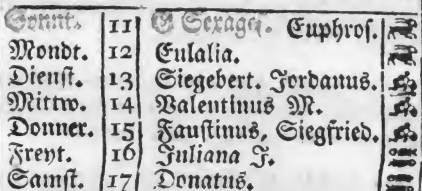 Sonnt. 11 G Sexages. Euphros.
Mondt. 12 Eulalia.
Dienst. 13 Siegebert. Jordanus.
Mittw. 14 Valentinus M.
Donner. 15 Faustinus, Siegfried.
Freyt. 16 Juliana J.
Samst. 17 Donatus.